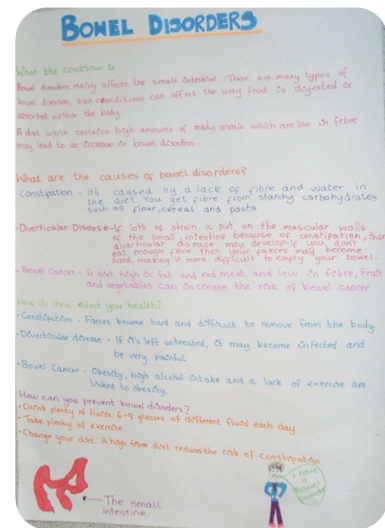 BOWEL DISORDERS
What the condition is
Bowel disorders mainly affects the small intestine. There are many types of
bowel disorders, such conditions can affect the way food is digested or
absorbed within the body.
A diet which contains high amounts of ready meals which are low in febre
may lead to an increase in bowel disorders.
What are the causes of bowel disorders?
-Constipation - It's caused by a lack of fibre and water in
the diet. You get fibre from starchy carbohydrates
such as flour, cereal and pasta
-Diverticular Disease - If lots of strain is put on the muscular walls
of the small intestine because of constipation, then
diverticular disease may develop. If you don't
eat enough fibre then your faeces may become
hard, making it more difficult to empty your bowel.
- Bowel Cancer - A diet high in fat and red meat and low in febre, fruit
and vegetables can increase the risk of bowel cancer
How do these effect your health?
-Constipation - Faeces become hard and difficult to remove from the body.
-Diverticular disease - If it's left untreated, it may become infected and
be very painful
-Bowel Cancer - Obesity, high alcohol intake and a lack of exercise are
linked to obesity.
How can you prevent bowel disorders?
-Drink plenty of fluids 6-9 glasses of different fluid each day
-Take plenty of exercise
-Change your diet. A high fibre diet reduces the risk of constipation
The small
intestine.
I have
a
Bowel
Disorder